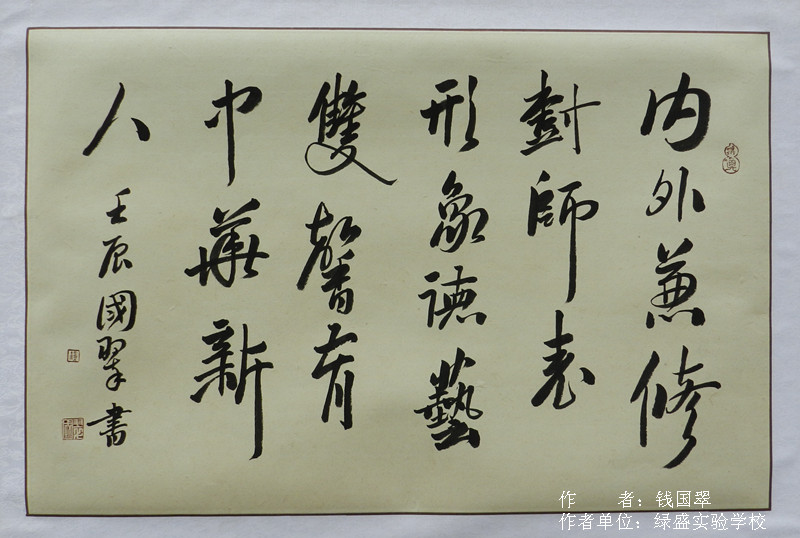 内外兼修
尌師表
形象德藝
雙馨育
中華新
人
壬辰國翠書
作 者：钱国翠
作者单位：绿盛实验学校